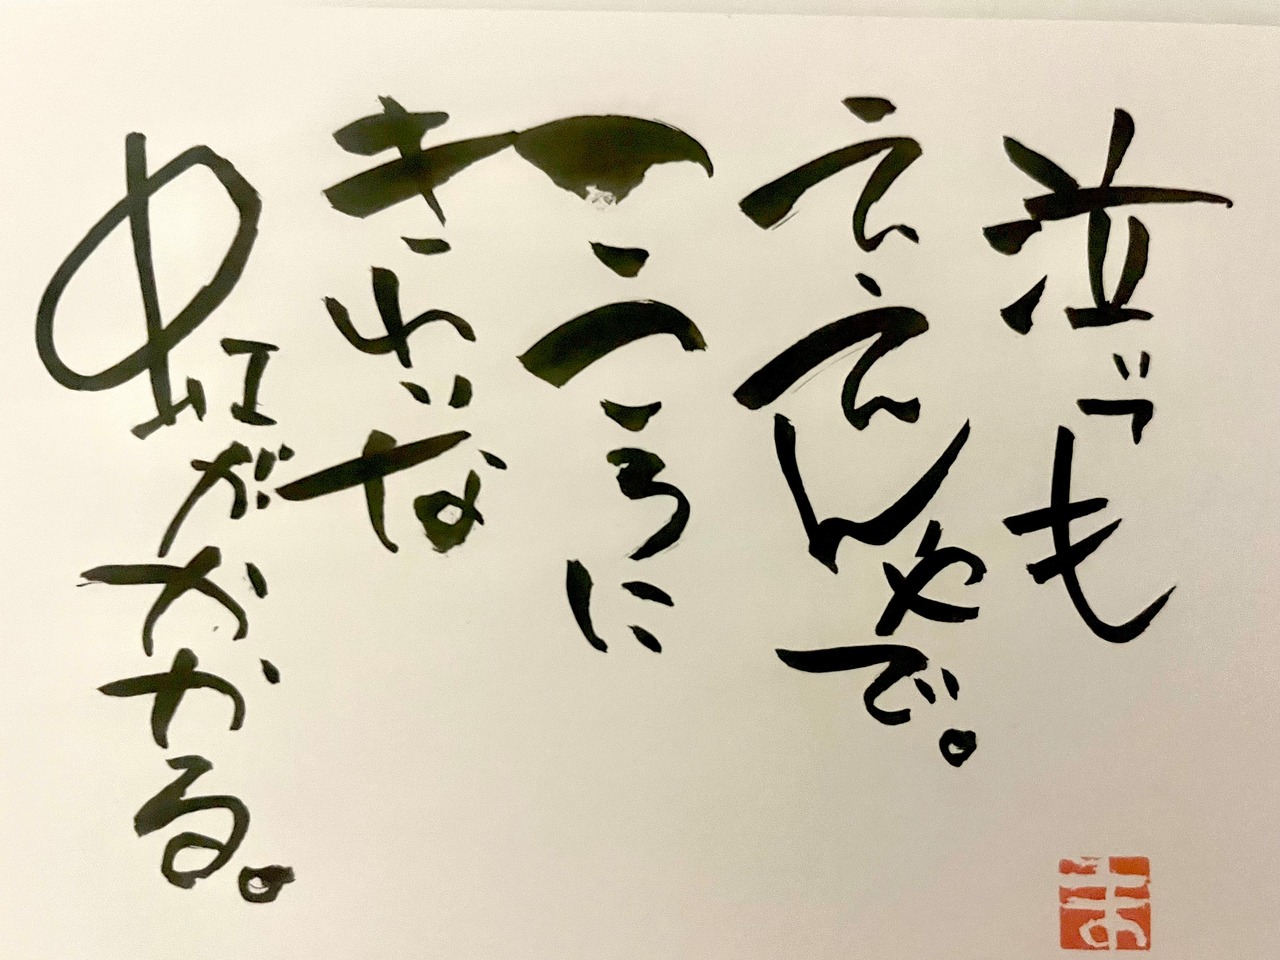 泣いても
ええんやで。
こころに
きれいな
虹がかかる。
ま